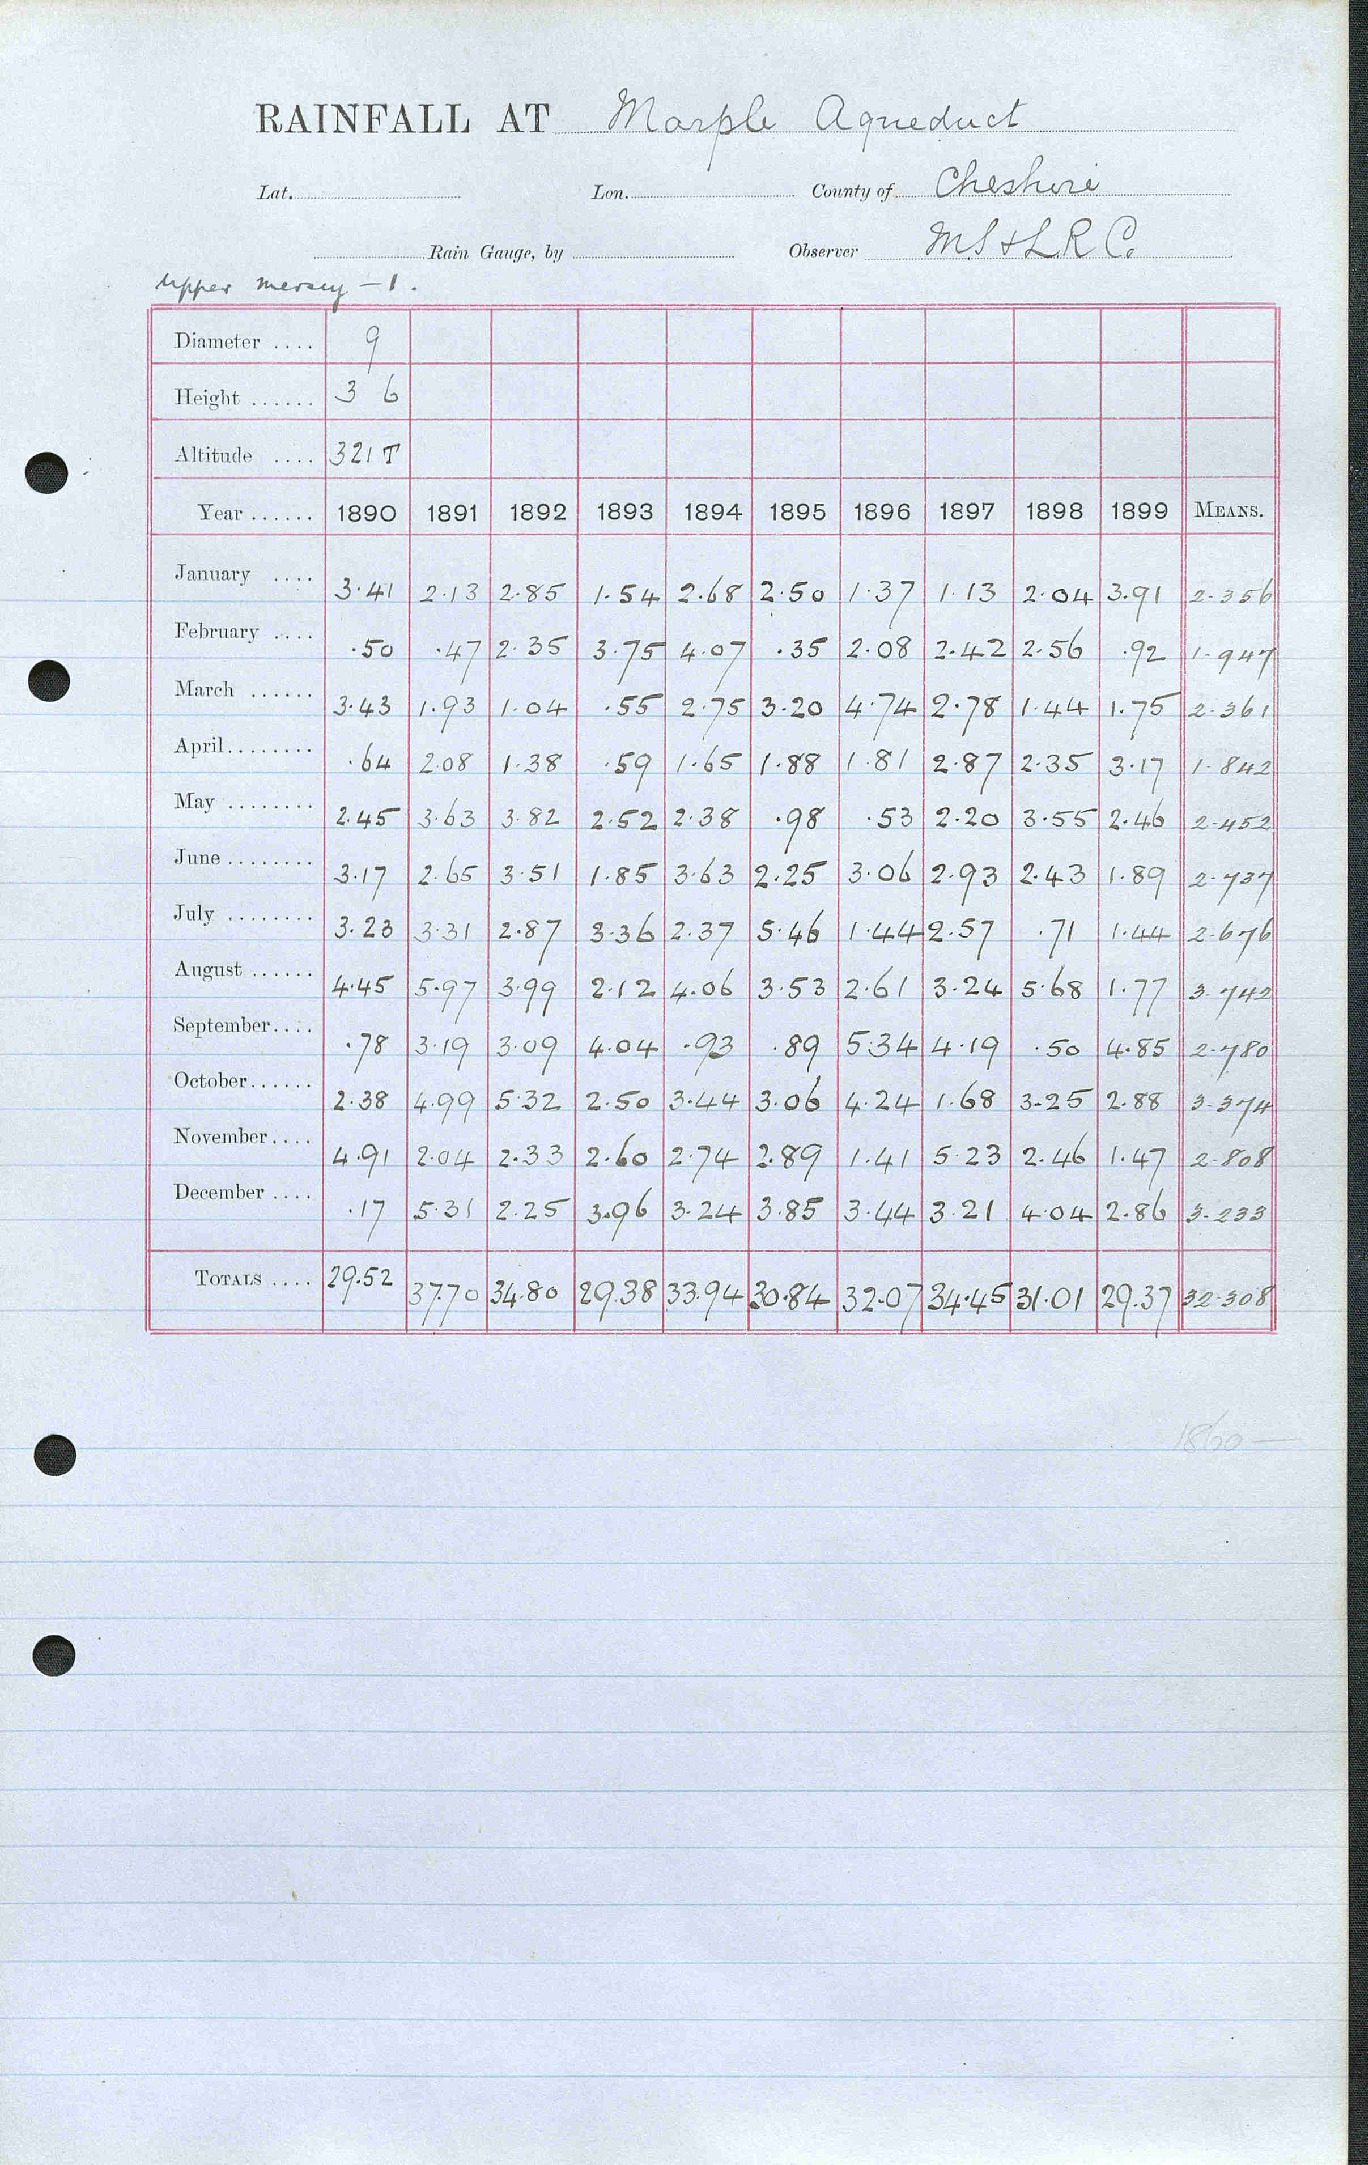 RAINFALL AT Marple Aqueduct
Lat. Lon. County of Cheshire
Rain Gauge, by Observer M.S & L.R.C.
Upper Mersey - 1.
Diameter .... 9
Height ...... 3 6
Altitude .... 321 T
Year ...... 1890 1891 1892 1893 1894 1895 1896 1897 1898 1899 MEANS.
January .... 3.41 2.13 2.85 1.54 2.68 2.50 1.37 1.13 2.04 3.91 2.356
February .... .50 .47 2.35 3.75 4.07 .35 2.08 2.42 2.56 .92 1.947
March ...... 3.43 1.93 1.04 .55 2.75 3.20 4.74 2.78 1.44 1.75 2.361
April........ .64 2.08 1.38 .59 1.65 1.88 1.81 2.87 2.35 3.17 1.842
May ........ 2.45 3.63 3.82 2.52 2.38 .98 .53 2.20 3.55 2.46 2.452
June ........ 3.17 2.65 3.51 1.85 3.63 2.25 3.06 2.93 2.43 1.89 2.737
July ........ 3.23 3.31 2.87 3.36 2.37 5.46 1.44 2.57 .71 1.44 2.676
August ...... 4.45 5.97 3.99 2.12 4.06 3.53 2.61 3.24 5.68 1.77 3.742
September.... .78 3.19 3.09 4.04 .93 .89 5.34 4.19 .50 4.85 2.780
October...... 2.38 4.99 5.32 2.50 3.44 3.06 4.24 1.68 3.25 2.88 3.374
November.... 4.91 2.04 2.33 2.60 2.74 2.89 1.41 5.23 2.46 1.47 2.808
December .... .17 5.31 2.25 3.96 3.24 3.85 3.44 3.21 4.04 2.86 3.233
TOTALS .... 29.52 37.70 34.80 29.38 33.94 30.84 32.07 34.45 31.01 29.37 32.308
1860 —